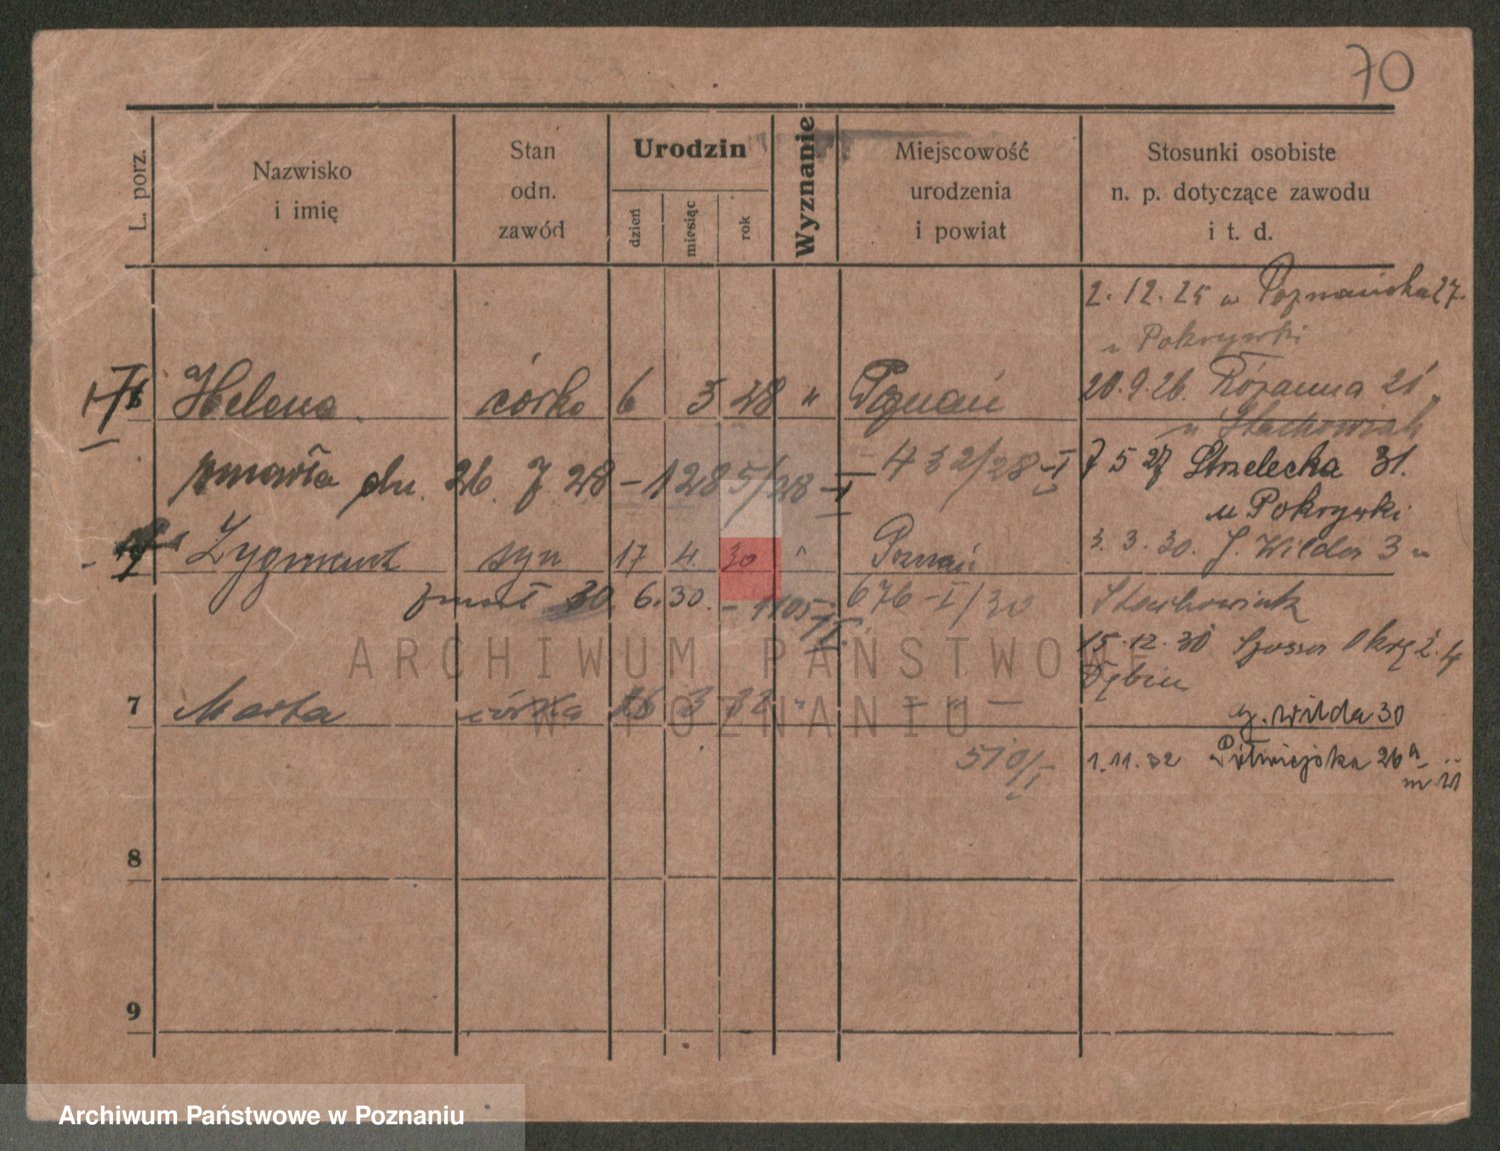 70
L. porz.
Nazwisko
i imię
Stan
odn.
zawód
Urodzin
dzień
miesiąc
rok
Wyznanie
Miejscowość
urodzenia
i powiat
Stosunki osobiste
n. p. dotyczące zawodu
i t. d.
2.12.25 w Poznańska 27.
u Pokrywki
Helena córka 6 3 28 " Poznań 20.9.26. Różanna 21
u Stachowiak
zmarła dn. 26. 7 28 - 1285/28 - I - 432/28 - I 7 5 27 Strzelecka 31.
u Pokrywki
Zygmunt syn 17 4. 30 " Poznań 3.3.30. G. Wilda 3 u
zmarł 30. 6. 30. - 1105 - II. 676 - I/30 Stachowiak
15.12.30 Szosa Okręż. 4
Dębiec
7 Marta córka 16 3 32 " - " -
g. wilda 30
510/I 1.11.32 Półwiejska 26a
m 11
8
9
ARCHIWUM PAŃSTWOWE
W POZNANIU
Archiwum Państwowe w Poznaniu